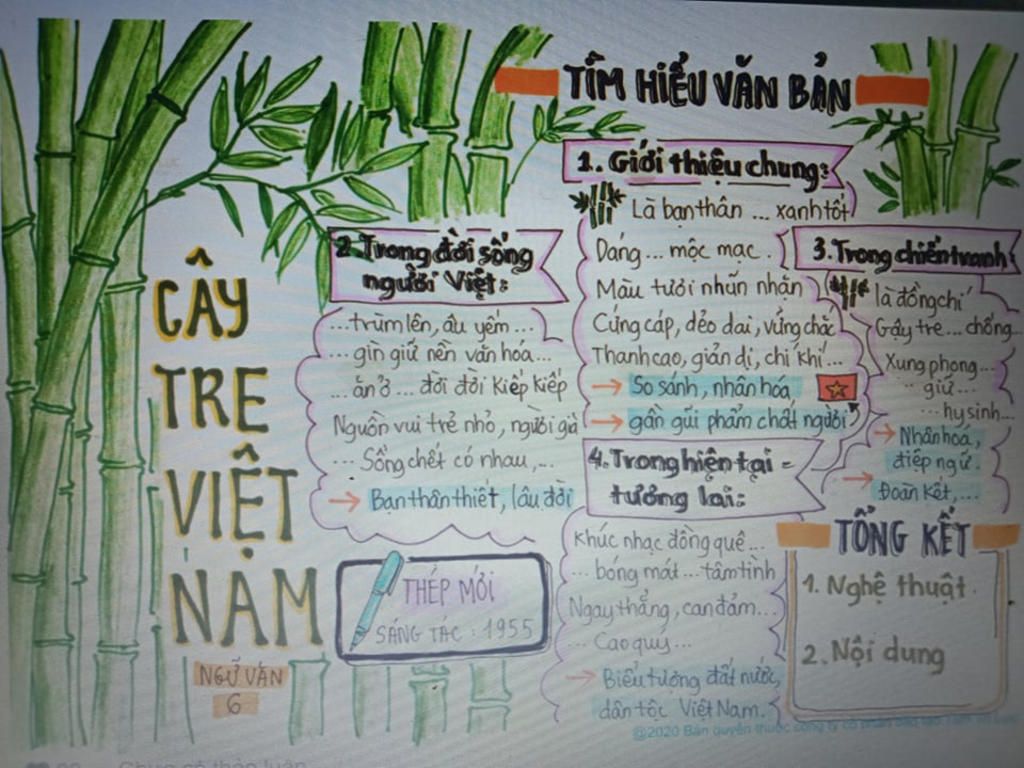 TÌM HIỂU VĂN BẢN
CÂY
TRE
VIỆT
NAM
NGỮ VĂN
6
1. Giới thiệu chung:
Là bạn thân ... xanh tốt
Dáng... mộc mạc.
Màu tươi nhũn nhặn
Cứng cáp, dẻo dai, vững chắc
Thanh cao, giản dị, chí khí...
→ So sánh, nhân hóa
→ gần gũi phẩm chất người
2. Trong đời sống
người Việt:
...trùm lên, âu yếm...
...gìn giữ nền văn hóa...
... ăn ở... đời đời kiếp kiếp
Nguồn vui trẻ nhỏ, người già
... Sống chết có nhau,...
→ Bạn thân thiết, lâu đời
3. Trong chiến tranh
là đồng chí
Gậy tre... chống
Xung phong...
giữ...
...hy sinh...
→ Nhân hóa,
điệp ngữ.
→ Đoàn kết,...
4. Trong hiện tại -
tương lai:
Khúc nhạc đồng quê...
... bóng mát... tâm tình
Ngay thẳng, can đảm...
... Cao quý...
→ Biểu tượng đất nước,
dân tộc Việt Nam.
THÉP MỚI
SÁNG TÁC: 1955
TỔNG KẾT
1. Nghệ thuật.
2. Nội dung
@2020 Bản quyền thuộc công ty cổ phần đào tạo